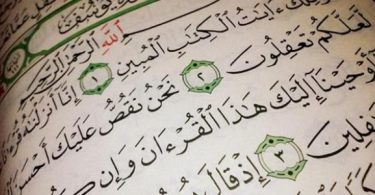 ٱللَّهِ ٱلرَّحْمَٰنِ
ءَايَٰتُ ٱلْكِتَٰبِ ٱلْمُبِينِ ١ إِنَّآ أَنزَلْنَٰهُ
لَّعَلَّكُمْ تَعْقِلُونَ ٢ نَحْنُ نَقُصُّ عَلَيْكَ أَحْسَنَ
أَوْحَيْنَآ إِلَيْكَ هَٰذَا ٱلْقُرْءَانَ وَإِن
فِلِينَ ٣ إِذْ قَالَ